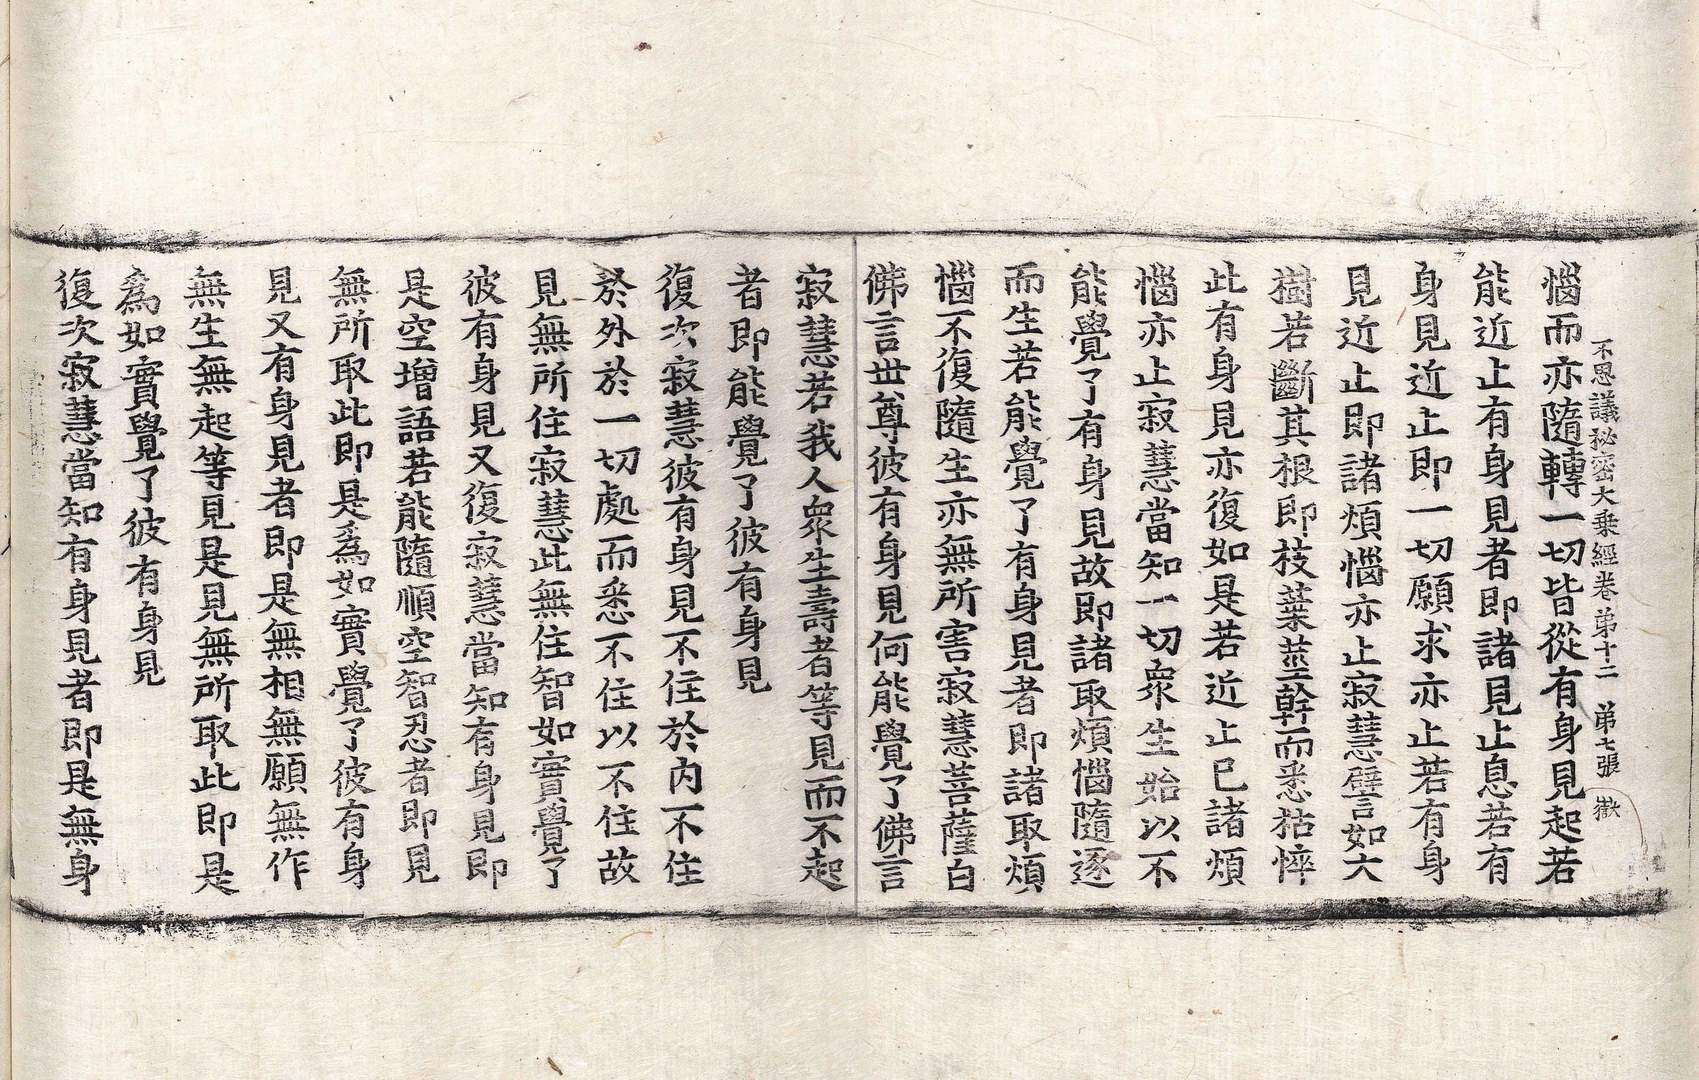 不思議秘密大乗經卷 苐十二 苐七張 嶽
惱而亦隨轉一切皆從有身見起若
能近止有身見者即諸見止息若有
身見近止即一切願求亦止若有身
見近止即諸煩惱亦止寂慧譬如大
樹若斷其根即枝葉莖幹而悉枯悴
此有身見亦復如是若近止已諸煩
惱亦止寂慧當知一切衆生始以不
能覺了有身見故即諸取煩惱隨逐
而生若能覺了有身見者即諸取煩
惱不復隨生亦無所害寂慧菩薩白
佛言世尊彼有身見何能覺了佛言
寂慧若我人衆生壽者等見而不起
者即能覺了彼有身見
復次寂慧彼有身見不住於内不住
於外於一切處而悉不住以不住故
見無所住寂慧此無住智如實覺了
彼有身見又復寂慧當知有身見即
是空增語若能隨順空智忍者即見
無所取此即是爲如實覺了彼有身
見又有身見者即是無相無願無作
無生無起等見是見無所取此即是
爲如實覺了彼有身見
復次寂慧當知有身見者即是無身